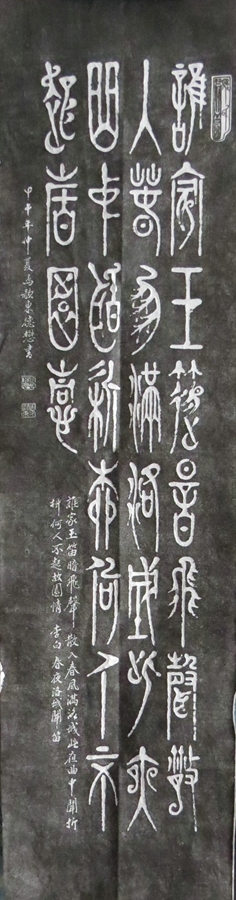 誰家玉笛暗飛聲散
入春風滿洛城此夜
曲中聞折柳何人不
起故園情
甲午年仲夏
書
誰家玉笛暗飛聲散入春風滿洛城此夜曲中聞折
柳何人不起故園情 李白 春夜洛城聞笛